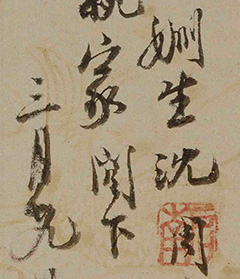 婣生沈周
家閣下
三月九